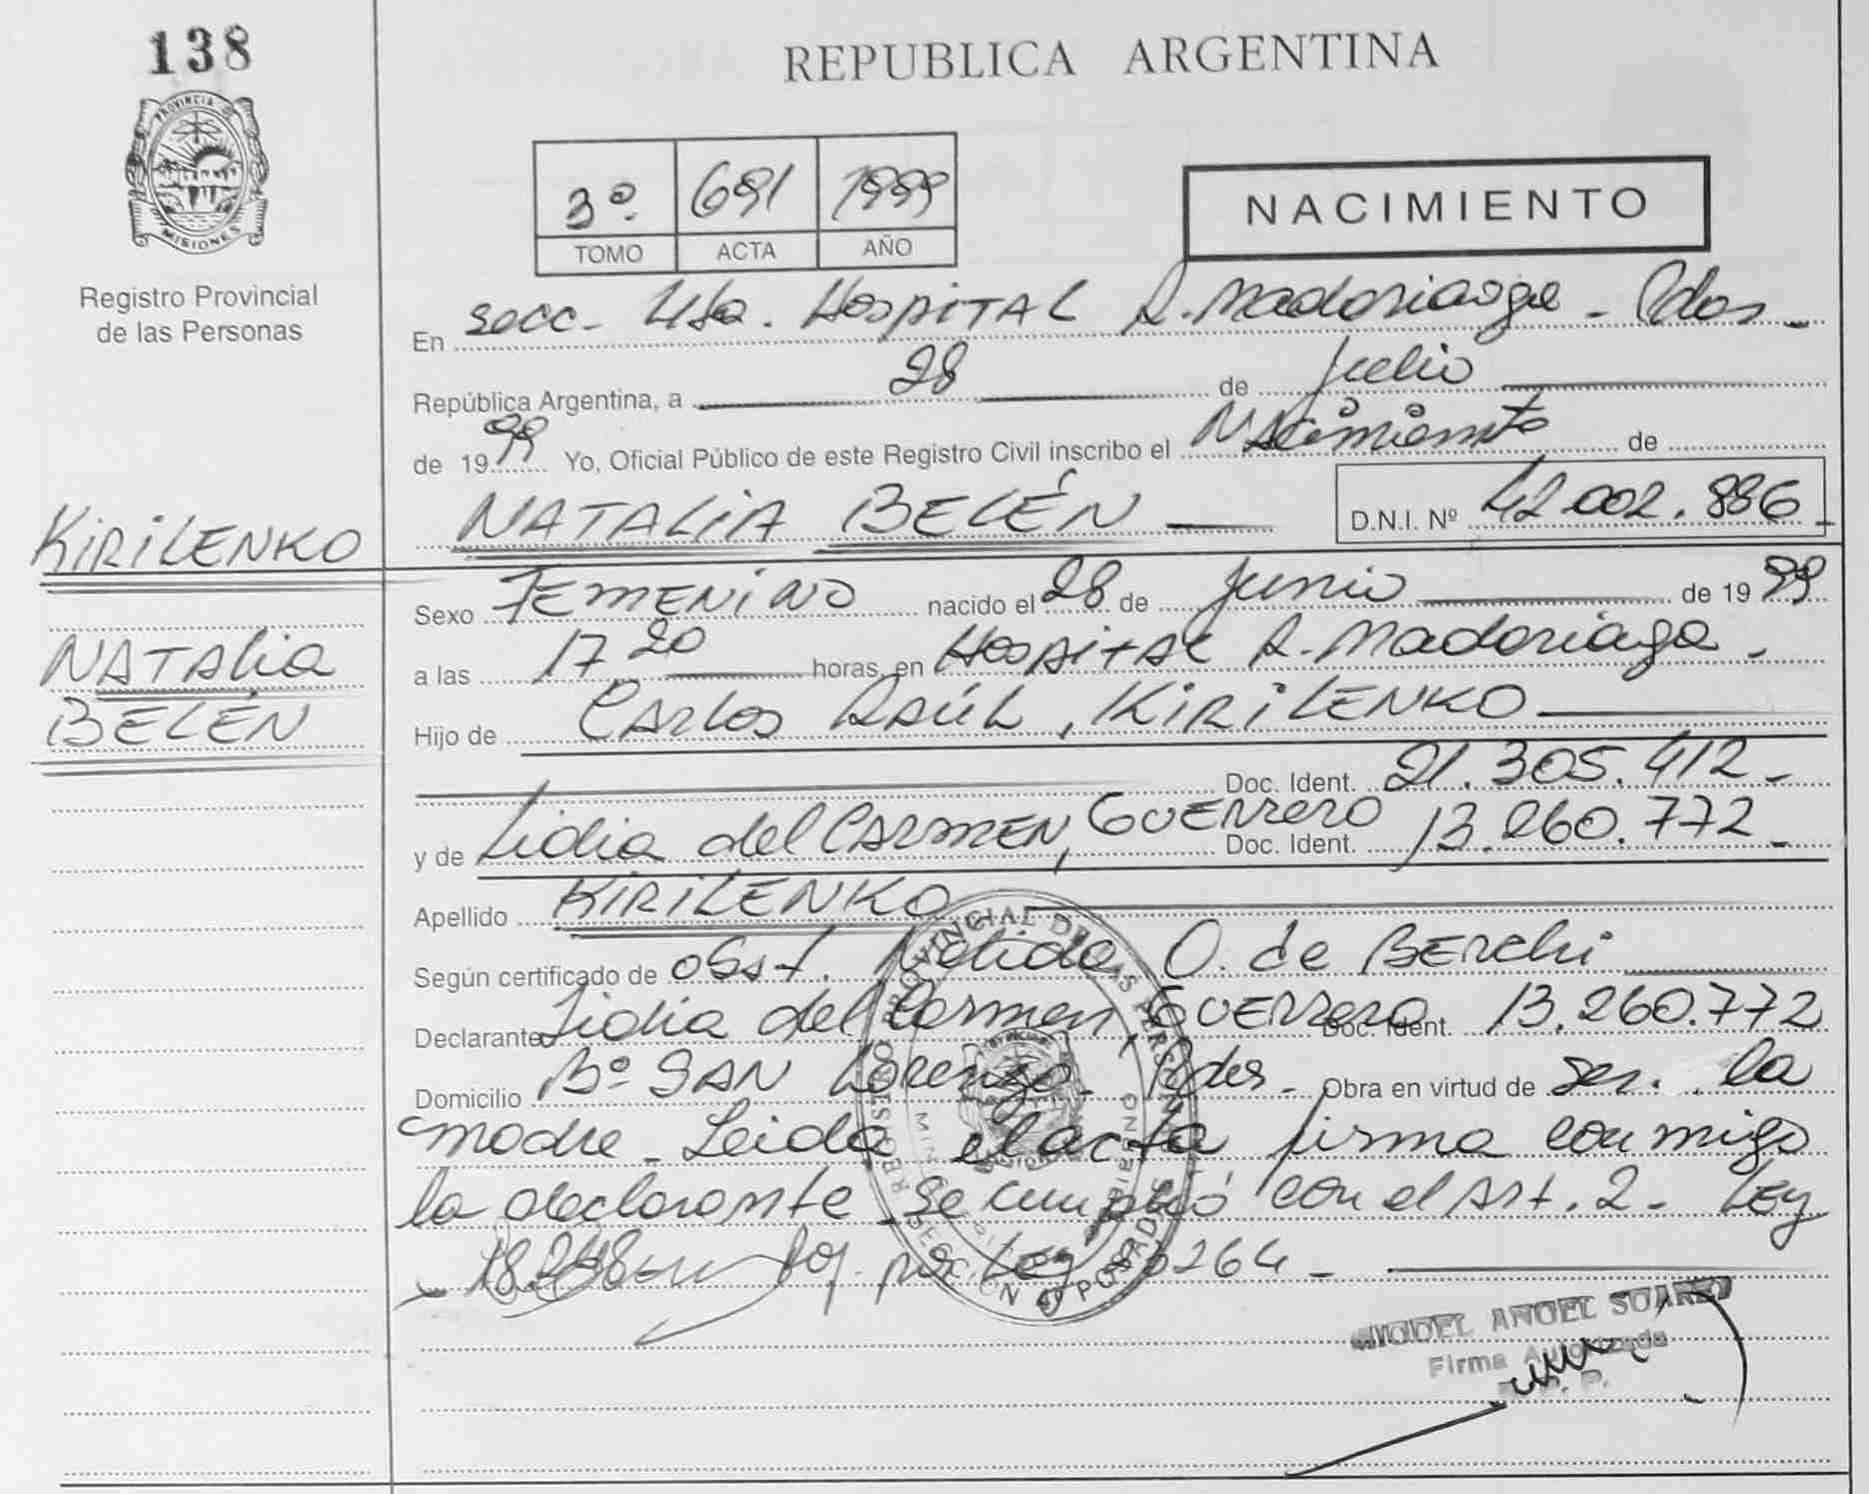 138
PROVINCIA D
MISIONES
Registro Provincial
de las Personas
REPUBLICA ARGENTINA
3º. 691 1999
TOMO ACTA AÑO
NACIMIENTO
En secc. 4ta. Hospital R. Madariaga - Pdas -
República Argentina, a 28 de Julio
de 1999 Yo, Oficial Público de este Registro Civil inscribo el Nacimiento de
KIRILENKO NATALIA BELÉN D.N.I. Nº 42.002.886
Sexo FEMENINO nacido el 28 de Junio de 1999
NATALIA
a las 17 20 horas, en Hospital R. Madariaga.
BELÉN
Hijo de CARLOS RAÚL, KIRILENKO
Doc. Ident. 21.305.412-
y de Lidia del CARMEN, GUERRERO Doc. Ident. 13.260.772-
Apellido KIRILENKO
Según certificado de obst. O. de BERCHI
Declarante Lidia del Carmen, GUERRERO Doc. Ident. 13.260.772
Domicilio Bº SAN Lorenzo - Pdas - Obra en virtud de ser la
madre - Leida el acta firma conmigo
la declarante - Se cumplió con el Art. 2 - Ley
- 18.248
REGISTRO PROVINCIAL DE LAS PERSONAS
POSADAS
MIGUEL ANGEL SUAREZ
Firma Autorizada